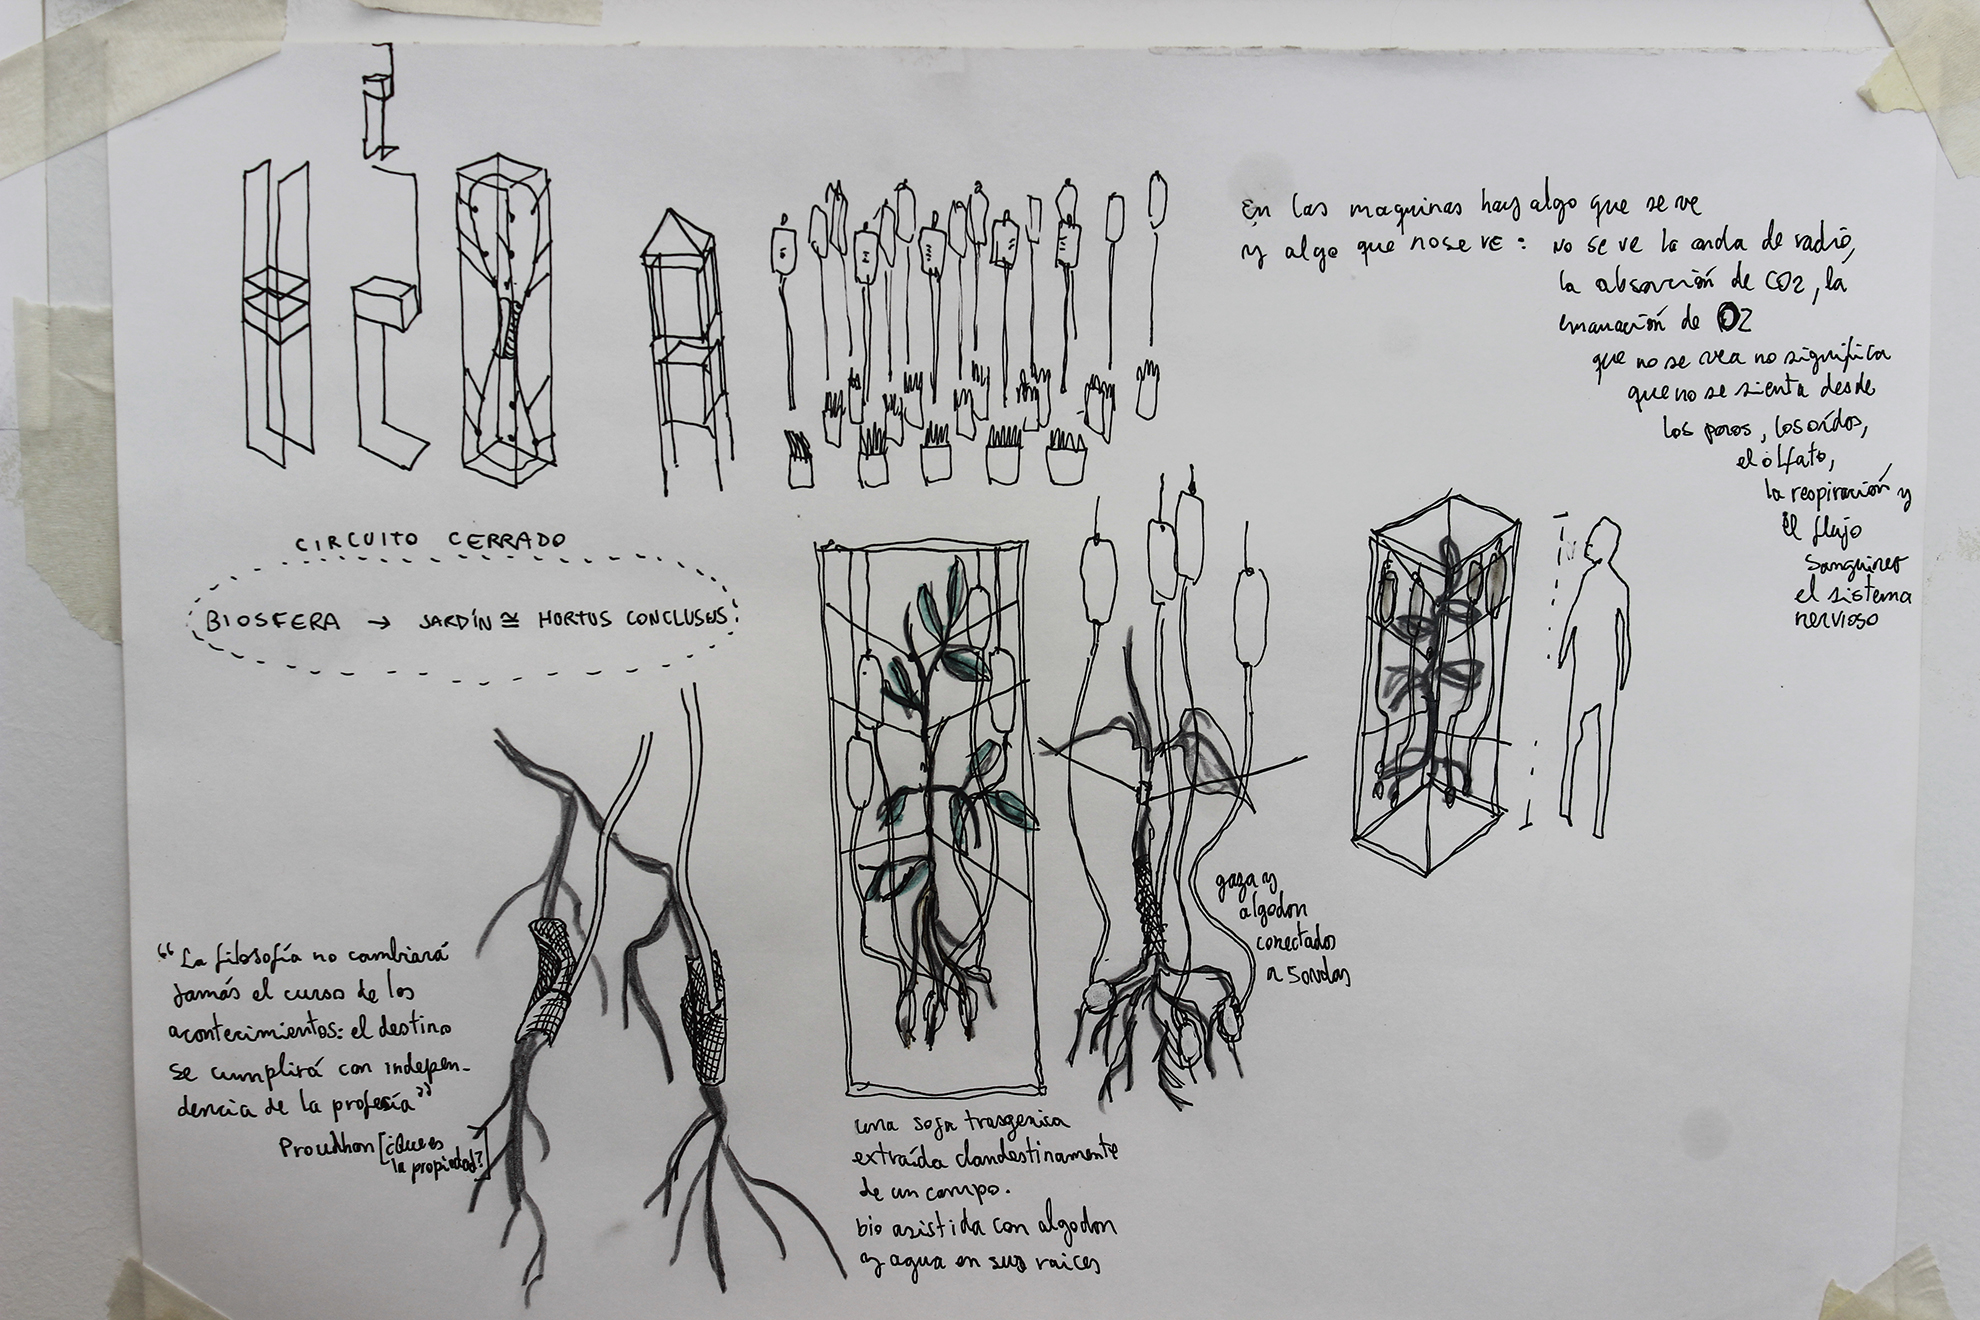 En las maquinas hay algo que se ve
y algo que no se ve : no se ve la onda de radio,
la absorción de CO2, la
emanación de O2
que no se vea no significa
que no se sienta desde
los poros, los oídos,
el olfato,
la respiración y
el flujo
sanguineo
el sistema
nervioso
CIRCUITO CERRADO
BIOSFERA → JARDÍN ≅ HORTUS CONCLUSUS
gaza y
algodon
conectados
a sondas
“La filosofía no cambiará
jamás el curso de los
acontecimientos: el destino
se cumplirá con indepen-
dencia de la profesía”
Proudhon [¿Que es
la propiedad?]
una soja trasgenica
extraída clandestinamente
de un campo.
bio asistida con algodon
y agua en sus raices